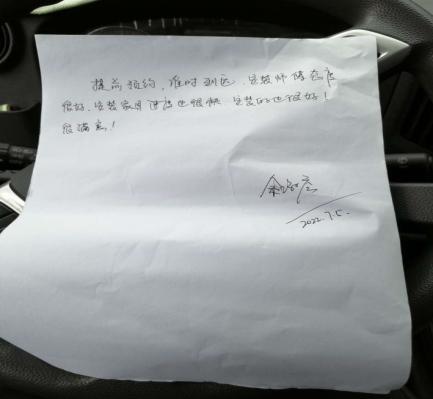 提前预约,准时到达,安装师傅态度
很好,安装家具速度也很快 安装的也很好!
很满意!
2022.7.5.